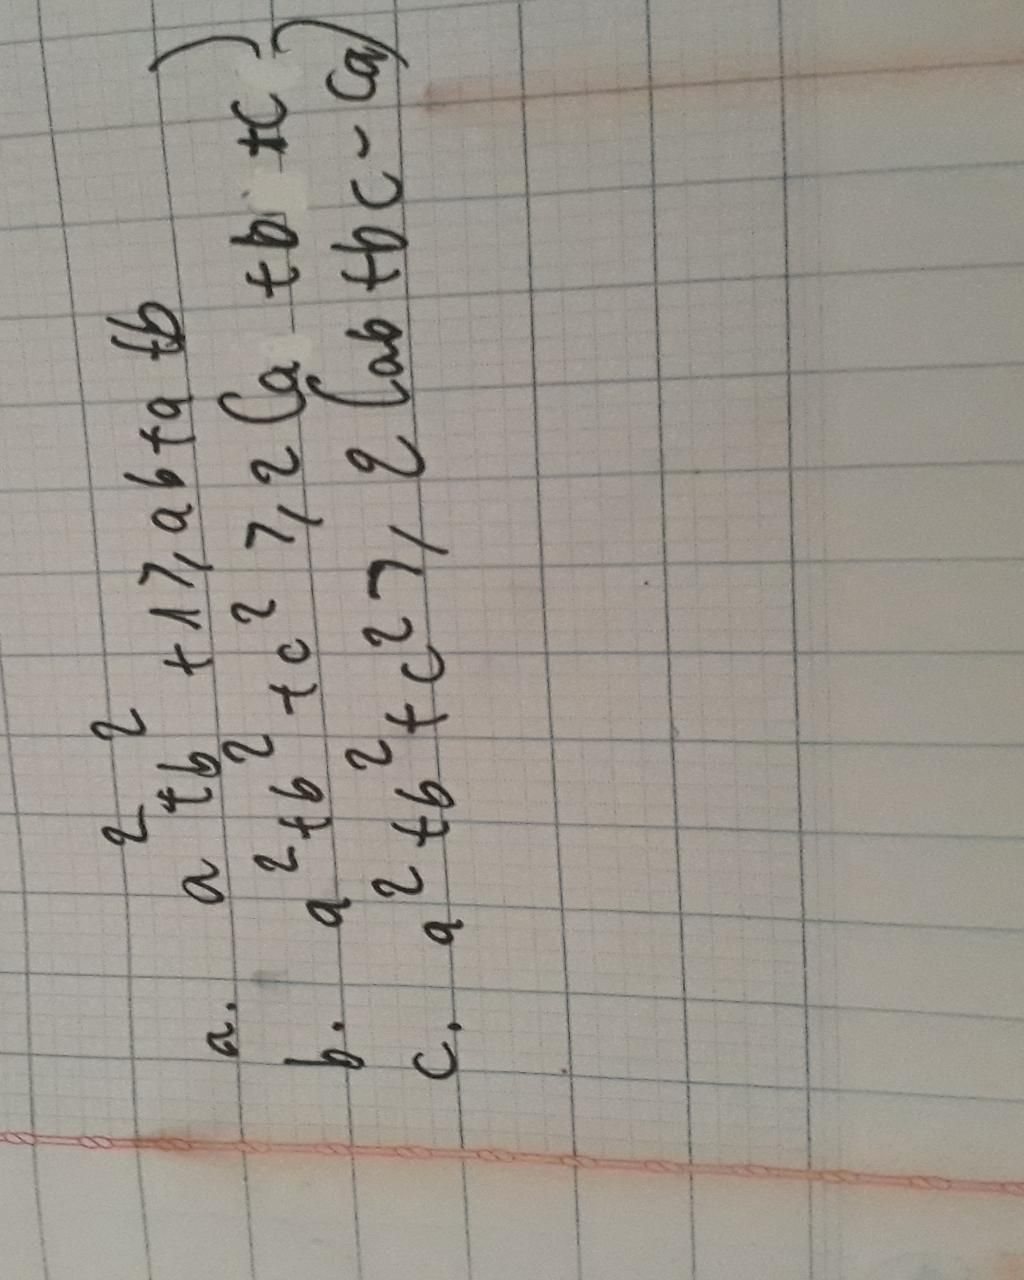 a. a² + b² + 1 ⩾ ab + a + b
b. a² + b² + c² ⩾ 2(a + b + c)
c. a² + b² + c² ⩾ 2(ab + bc - ca)